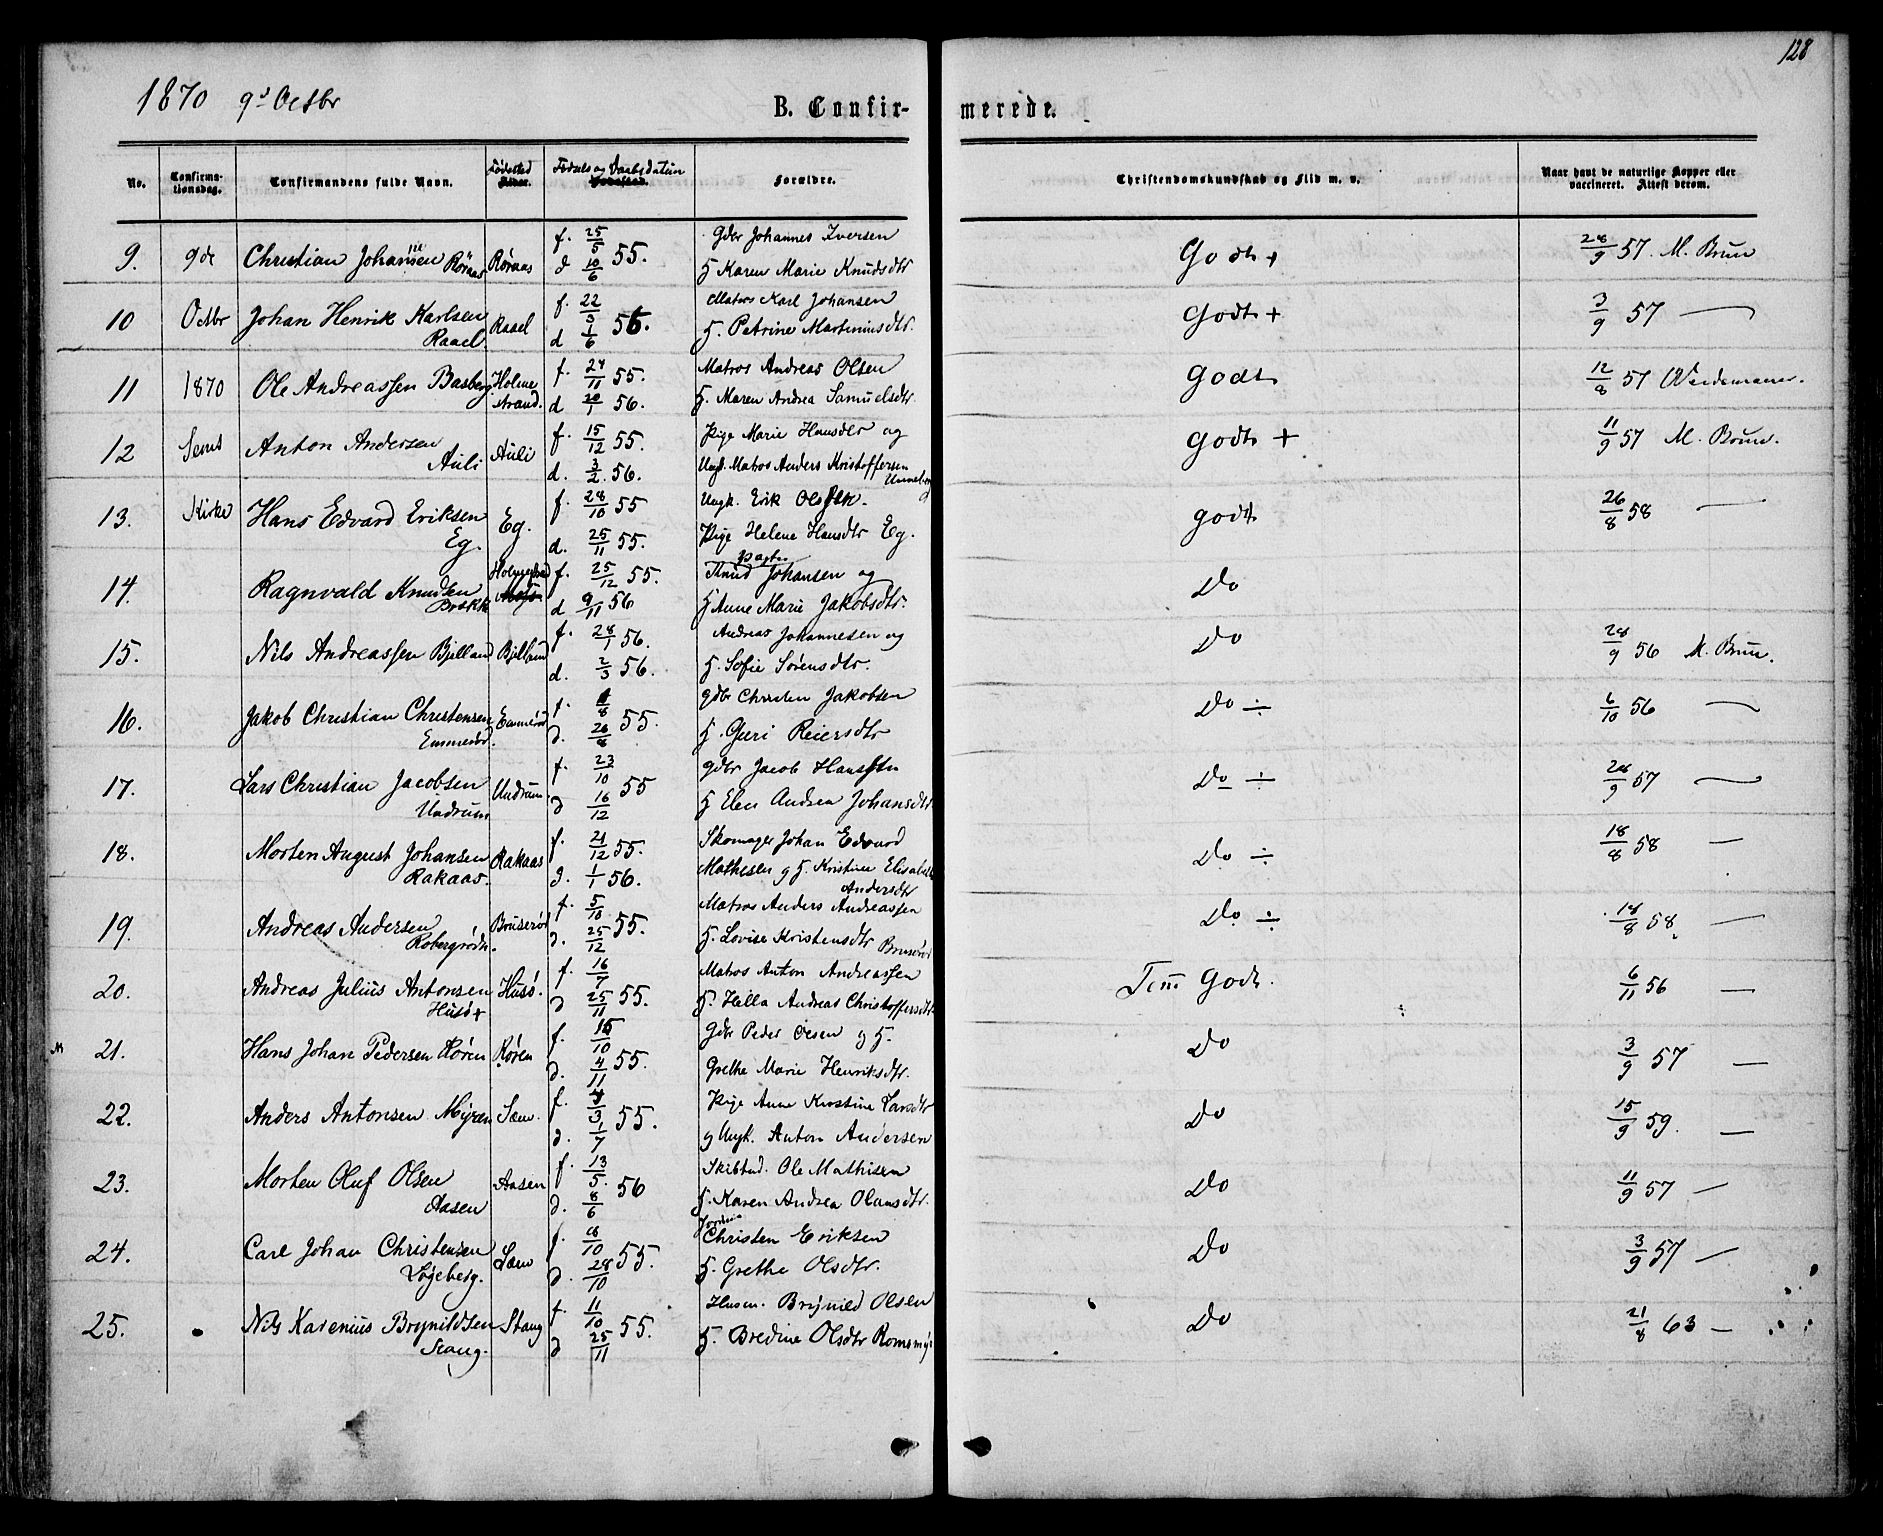 128
1870 9d Octbr
B. Confirmerede.
No.
Confirmationsdag.
Confirmandens fulde Navn.
Fødested
Alder.
Fødsels og Daabsdatum
Fødested.
Forældre.
Christendomskundskab og Flid m. v.
Naar havt de naturlige Kopper eller vaccineret. Attest derom.
9. 9de Christian Johansen Røraas Røraas f. 25/5 d 10/6 55. Gdbr Johannes Iversen
H Karen Marie Knudsdtr Godt + 28/9 57. M. Brun
10 Octbr Johan Henrik Karlsen Raael Raael f. 22/3 d 1/6 56. Matros Karl Johansen
H. Petrine Martiniusdtr. Godt + 3/9 57 —
11 1870 Ole Andreassen Basberg Holmestrand. f. 24/11 55. d 20/1 56. Matros Andreas Olsen
H. Maren Andrea Samuelsdtr. Godt 12/8 57
12 Sems Anton Andersen Auli Auli f. 15/12 55. d. 3/2 56. Pige Marie Hansdtr og
Ungk. Matros Anders Kristoffersen Unneberg Godt + 11/9 57 M. Brun.
13. Kirke Hans Edvard Eriksen Eg. Eg. f. 28/10 55 d. 25/11 55. Ungk. Erik Olsen.
Pige Helene Hansdtr Eg. godt 26/8 58 —
14. Ragnvald Knudsen Brekk f. 25/12 55. d 9/11 56 Knud Johansen og
H Anne Marie Jakobsdtr. Do
15. Nils Andreassen Bjelland Bjelland f. 28/1 56. d. 2/3 56. Andreas Johannesen og
H. Sofie Sørensdtr. Do 28/9 56 M. Brun.
16. Jakob Christian Christensen Emmerød. Emmerød f. 1/8 d. 26/8 55. gdbr Christen Jakobsen
H. Guri Reiersdtr Do ÷ 6/10 56 —
17. Lars Christian Jacobsen Undrum Undrum. f. 23/10 d 16/12 55 gdbr Jacob Hanssen
H Elen Andrea Johansdtr Do ÷ 28/9 57 —
18. Morten August Johansen Rakaas. Rakaas f. 21/12 55. d. 1/1 56. Skomager Johan Edvard
Mathesen g H. Kristine Elisabeth Andersdtr Do ÷ 18/8 58 —
19. Andreas Andersen Bruserød f. 5/10 d. 25/12 55. Matros Anders Andreassen
H. Lovise Kristensdtr Bruserød Do. ÷ 18/8 58, —
20. Andreas Julius Antonsen Husø+ Husø. f. 16/7 d 25/11 55. Matros Anton Andreassen
H. Hella Andreas Christoffersdtr Tem Godt. 6/11 56 —
21. Hans Johan Pedersen Røren Røren f. 15/10 d. 4/11 55. Gdbr Peder Olsen g H.
Grethe Marie Henriksdtr. Do 3/9 57 —
22. Anders Antonsen Myren Sem. f. 4/3 d. 1/7 55. Pige Anne Kirstine Larsdtr
g Ungk. Anton Andersen Do 15/9 59. —
23. Morten Oluf Olsen Aasen Aasen f. 13/5. d. 8/6 56 Skibtød. Ole Mathisen
H. Karen Andrea Olausdtr. Do 11/9 57 —
24. Carl Johan Christensen Løgeberg. Sem f. 8/10 d. 28/10 55. Christen Eriksen
H. Grethe Olsdtr. Do 3/9 57 —
25. Nils Karenius Brynildsen Stang. Stang f. 11/10 d 25/11 55. Husm. Brynild Olsen
H. Bredine Olsdtr Romsmyr Do 21/8 63 —